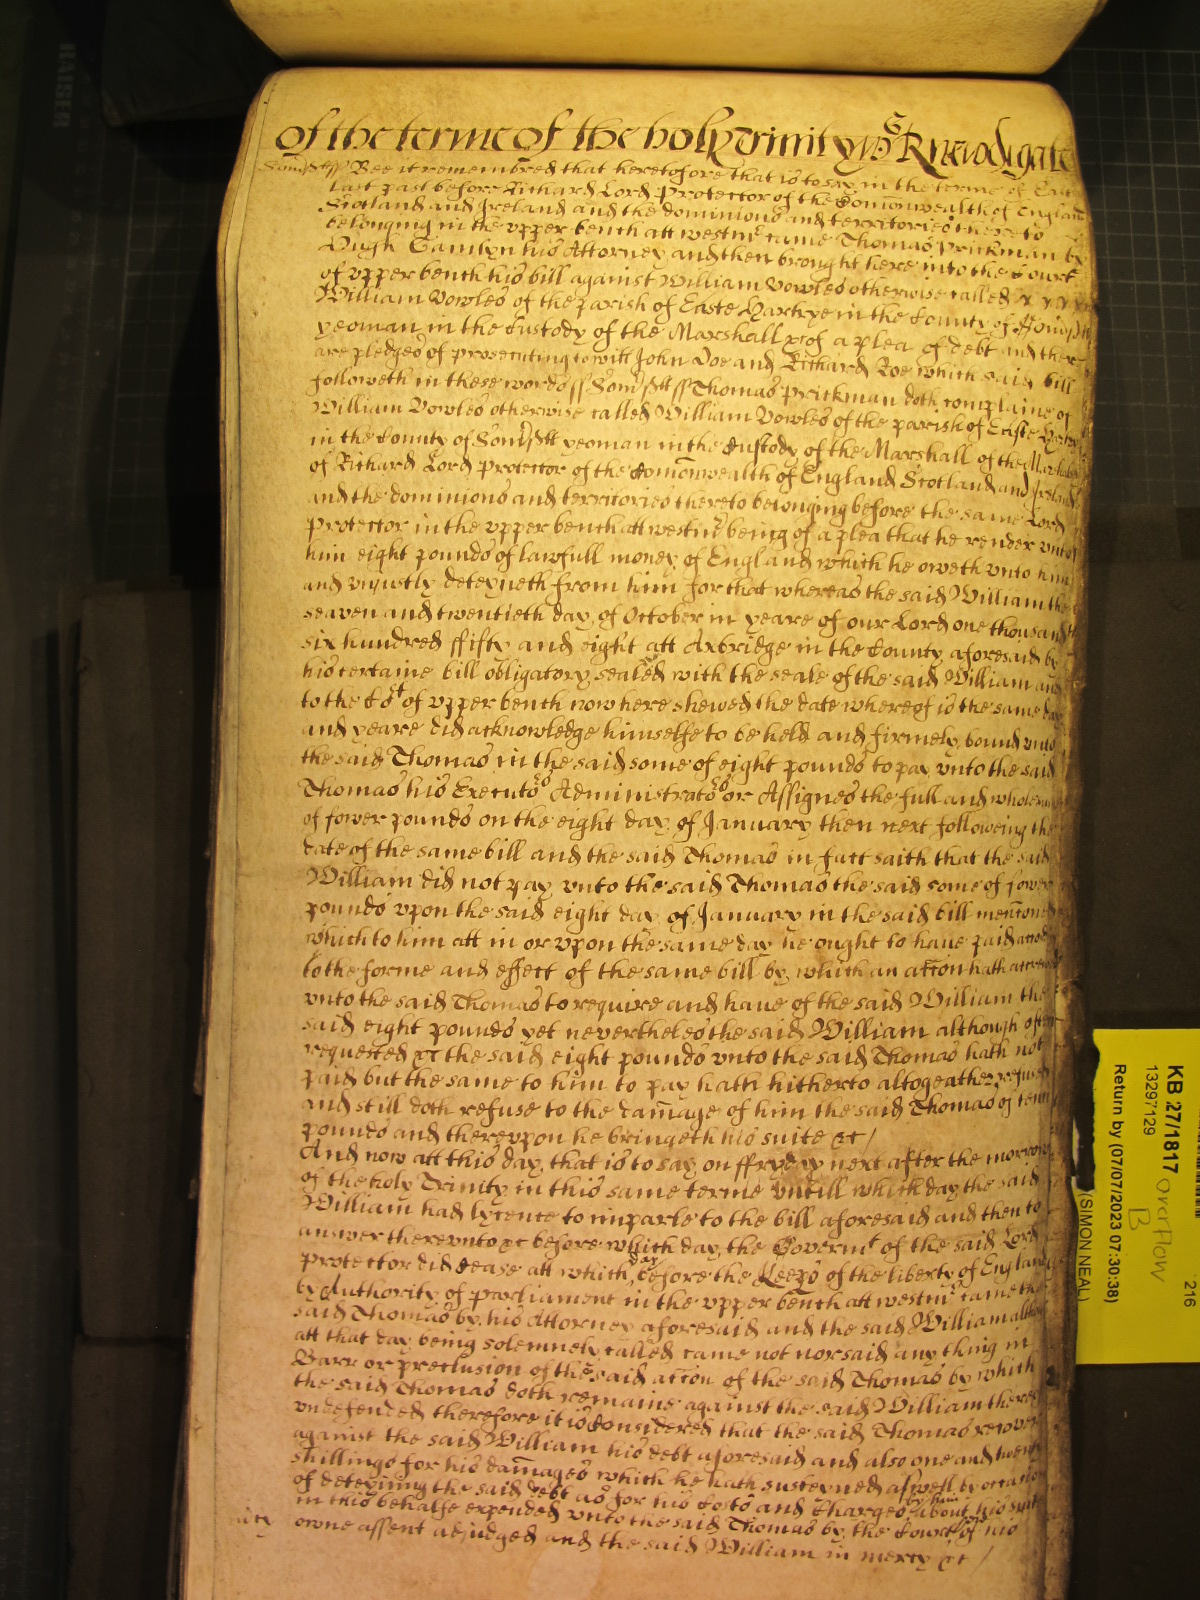 of the terme of the holy Trinity wth R newdigate
Somſtt ſſ Bee it remembred that heretofore that is to say in the terme of
last past before Richard Lord Protector of the Comonwealth of England
Scotland and Ireland and the dominions and territories thereto
belonging in the vpper bench att westmr came Thomas Prickman by
Hugh his Attorney and then brought here into the Court
of vpper bench his bill against William Vowles otherwise called
William Vowles of the parish of Easte Hartrye in the County of
yeoman in the Custody of the Marshall &c of a plea of debt and there
are pledges of prosecuting to witt John Doe and Richard Roe which said bill
followeth in these words ſſ Somſtt ſſ Thomas Prickman doth complaine of
William Vowles otherwise called William Vowles of the parish of Easte
in the County of Somſtt yeoman in the Custody of the Marshall of the
of Richard Lord Protector of the Comonwealth of England Scotland and Ireland
and the dominions and territories thereto belonging before the same Lord
Protector in the vpper bench att westmr being of a plea that he render vnto
him eight pounds of lawfull money of England which he oweth vnto him
and vniustly deteyneth from him for that whereas the said William the
seaven and twentieth day of October in yeare of our Lord one thousand
six hundred ffifty and eight att Axbridge in the County aforesaid by
his certaine bill obligatory sealed with the seale of the said William and
to the Cort of vpper bench now here shewed the date whereof is the same day
and yeare did acknowledge himselfe to be held and firmely bound vnto
the said Thomas in the said some of eight pounds to pay vnto the said
Thomas his Executors Administrators or Assignes the full and whole
of fower pounds on the eight day of January then next followeing the
date of the same bill and the said Thomas in fact saith that the said
William did not pay vnto the said Thomas the said some of fower
pounds vpon the said eight day of January in the said bill menconed
which to him att in or vpon the same day he ought to have paid
to the forme and effect of the same bill by which an accon hath
vnto the said Thomas to require and haue of the said William the
said eight pounds yet neverthelesˢ the said William although often
requested &c the said eight pounds vnto the said Thomas hath not
paid but the same to him to pay hath hitherto altogeather refused
and still doth refuse to the damage of him the said Thomas of tenn
pounds and therevpon he bringeth his suite &c /
And now att this day that is to say on ffryday next after the morrow
of the holy Trinity in this same terme vntill which day the said
William had lycence to imparle to the bill aforesaid and then to
answer therevnto &c before which day the Governmt of the said Lord
Protector did cease att which day before the Keeps of the liberty of England
by Authority of parliament in the vpper bench att westmr came the
said Thomas by his Attorney aforesaid and the said William
att that day being solemnely called came not nor said any thing in
Barr or preclusion of the said accon of the said Thomas by which
the said Thomas doth remaine against the said William
vndefended therefore it is Considered that the said Thomas recover
against the said William his debt aforesaid and also one and twenty
shillings for his damages which he hath susteyned aswell by occasion
of deteyning the said debt as for his Costs and Charges by him about his suite
in this behalfe expended vnto the said Thomas by the Court of his
owne assent adjudged and the said William in mercy &c /
KAISER
KB 27/1817 overflow
B
13297129
Return by (07/07/2023 07:30:38)
(SIMON NEAL)
216